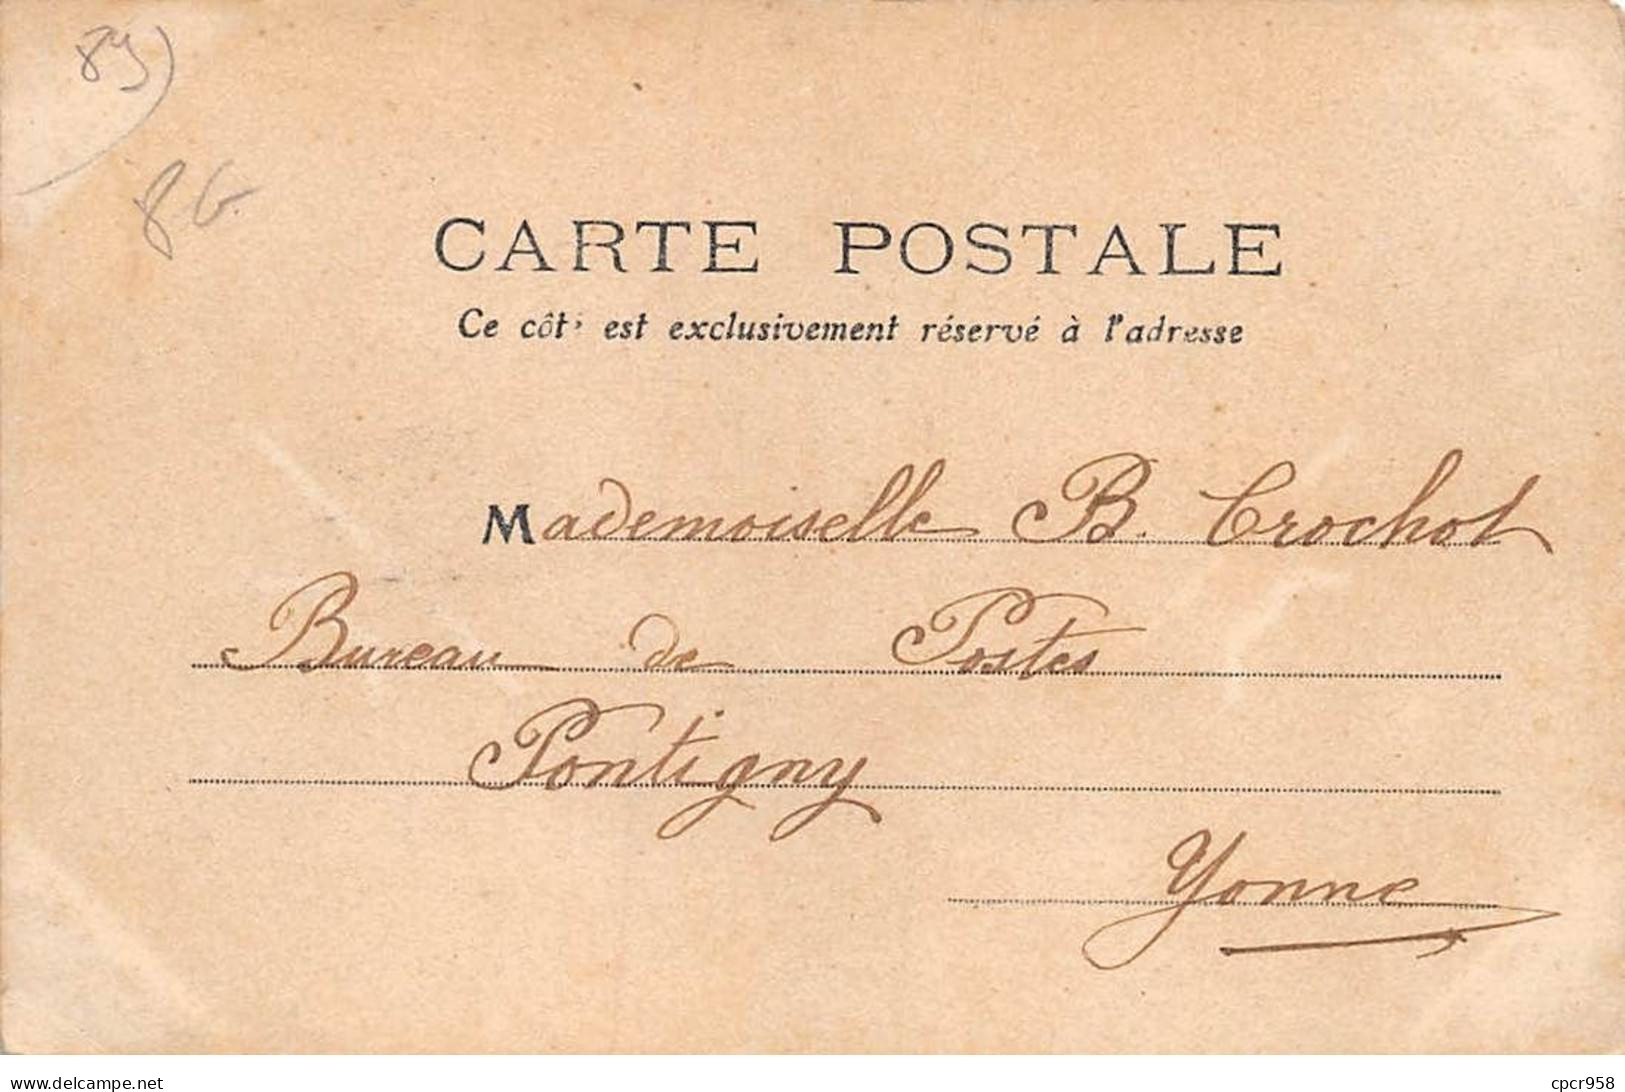 89
8G
CARTE POSTALE
Ce côté est exclusivement réservé à l'adresse
Mademoiselle B. Crochot
Bureau de Postes
Pontigny
Yonne
www.delcampe.net
cpcr958